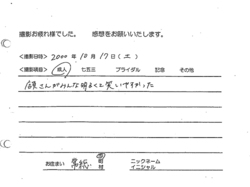 撮影お疲れ様でした。 感想をお願いいたします。
<撮影日時> 2000年 10月 17日(土)
<撮影項目> 成人 七五三 ブライダル 記念 その他
さんがみんな明るくて笑いやすかった
お住まい 市 町 村 ニックネーム イニシャル